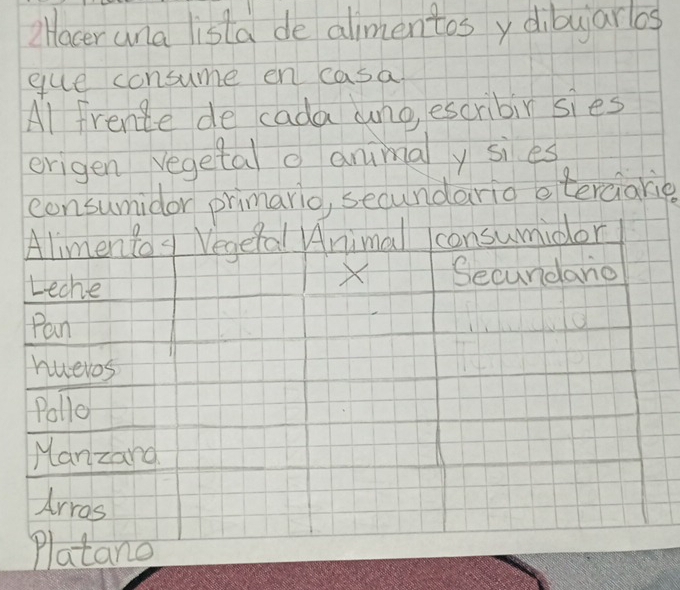 2 Hacer una lista de alimentos y dibujarlos
que consume en casa
Al frente de cada uno, escribir si es
origen vegetal o animal y si es
consumidor primario, secundario o terciario.
Alimentos Vegetal Animal consumidor
Leche X Secundario
Pan
huevos
Pollo
Manzana
Arros
Platano